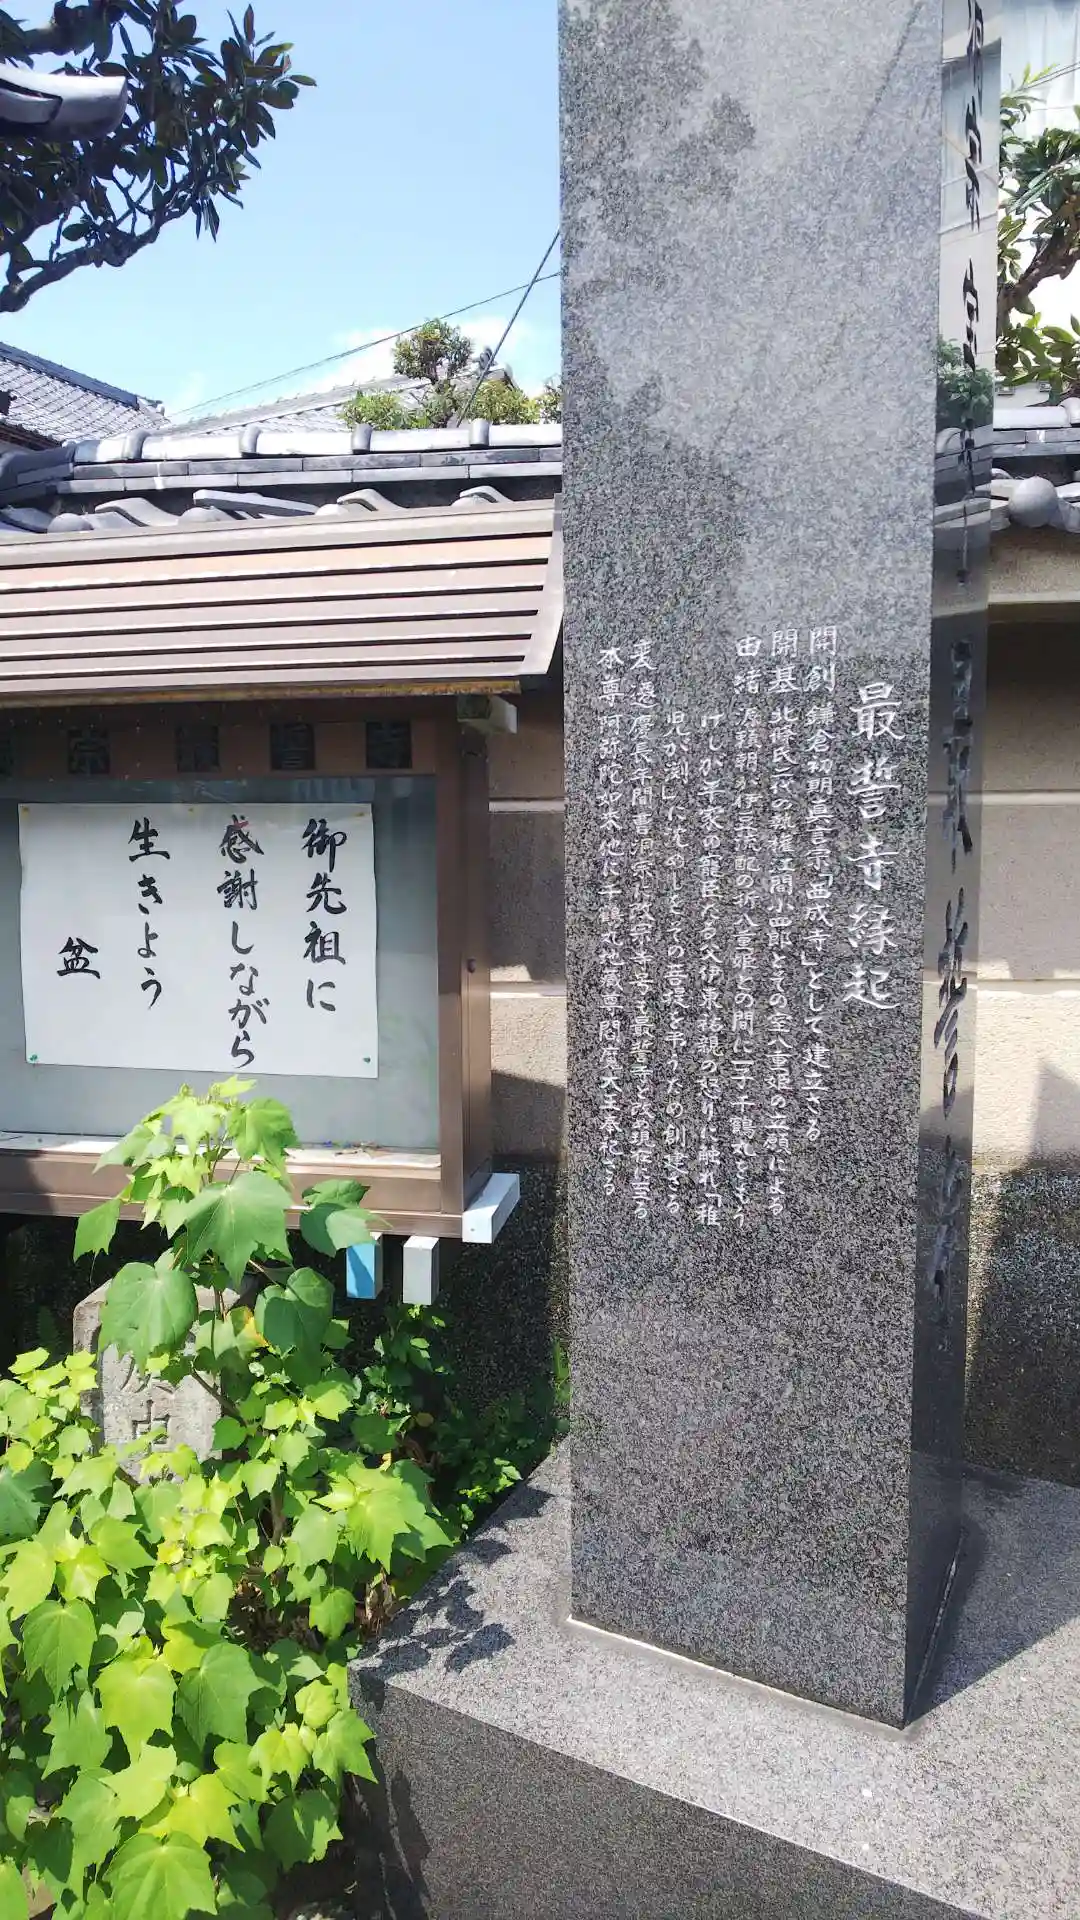 最誓寺縁起
開創 鎌倉初期真言宗「西成寺」として建立さる
開基 北條氏二代の執権江間小四郎とその室八重姫の立願による
由緒 源頼朝が伊豆流配の折八重姫との間に一子千鶴丸をもう
けしが平家の寵臣たる父伊東祐親の怒りに触れ「稚
児が渕」に沈めしをその菩提を弔うため創建さる
変遷 慶長年間曹洞宗に改宗寺号も最誓寺と改め現在に至る
本尊 阿弥陀如来他に千鶴丸地蔵尊閻魔大王奉祀さる
宗最誓寺
御先祖に
感謝しながら
生きよう
盆